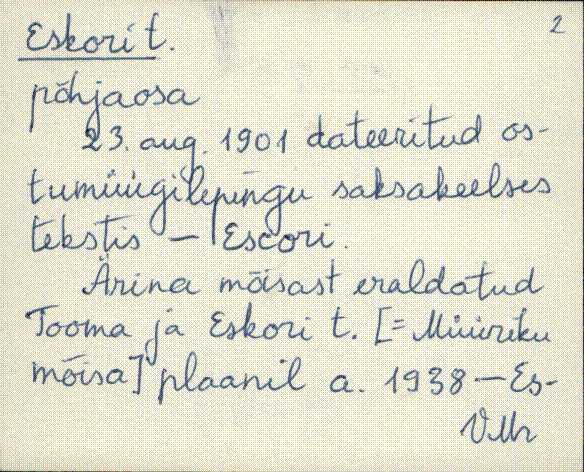 2
Eskori t.
põhjaosa
23. aug. 1901 dateeritud os-
tumüügilepingu saksakeelses
tekstis – Escori.
Ärina mõisast eraldatud
Tooma ja Eskori t. [= Müüriku
mõisa] plaanil a. 1938 – Es-